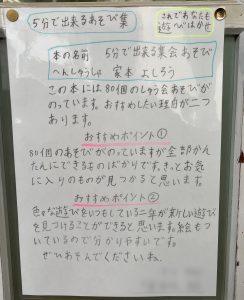 5分で出来るあそび集
これであなたも
遊びはかせ
本の名前 5分で出来る集会あそび
へんしゅうしゃ 家本よしろう
この本には80個のしゅう会あそびが
のっています。おすすめしたい理由が二つ
あります。
おすすめポイント①
80個のあそびがのっていますが全部かん
たんにできるものばかりです。きっとお気
に入りのものが見つかると思います。
おすすめポイント②
色々な遊びをいつもしている二年が新しい遊び
を見つけることができると思います。絵もつ
いているので分かりやすいです。
ぜひあそんでくださいね。